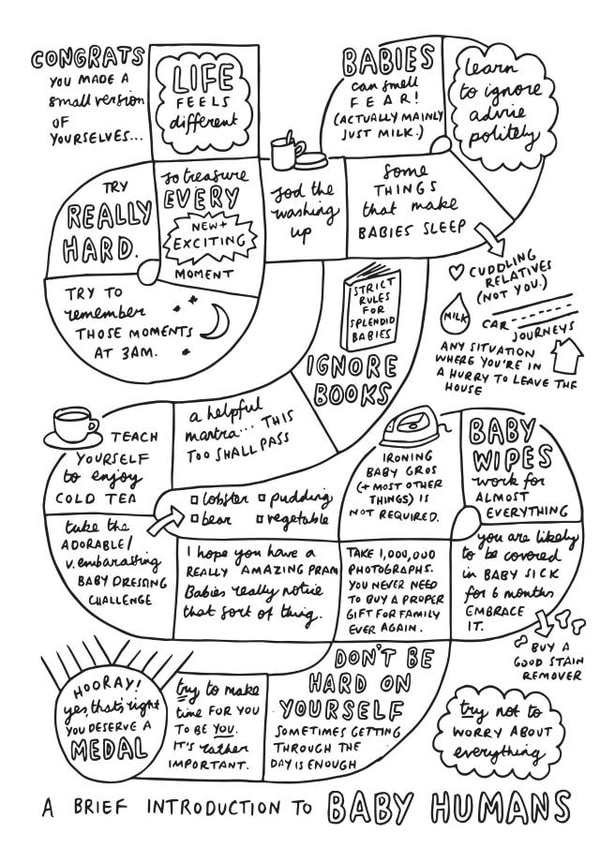 CONGRATS
YOU MADE A
small version
OF
YOURSELVES...
LIFE
FEELS
different
so treasure
EVERY
NEW +
EXCITING
MOMENT
TRY
REALLY
HARD.
TRY TO
remember
THOSE MOMENTS
AT 3AM.
sod the
washing
up
BABIES
can smell
FEAR!
(ACTUALLY MAINLY
JUST MILK.)
learn
to ignore
advie
politely
Some
THINGS
that make
BABIES SLEEP
CUDDLING
RELATIVES
(NOT YOU.)
MILK
CAR
JOURNEYS
ANY SITUATION
WHERE YOU'RE IN
A HURRY TO LEAVE THE
HOUSE
STRICT
RULES
FOR
SPLENDID
BABIES
IGNORE
BOOKS
a helpful
mantra... THIS
TOO SHALL PASS
TEACH
YOURSELF
to enjoy
COLD TEA
take the
ADORABLE/
v. embarassing
BABY DRESSING
CHALLENGE
lobster pudding
bear vegetable
I hope you have a
REALLY AMAZING PRAM
Babies really notice
that sort of thing.
IRONING
BABY GROS
(+ MOST OTHER
THINGS) IS
NOT REQUIRED.
BABY
WIPES
work for
ALMOST
EVERYTHING
TAKE 1,000,000
PHOTOGRAPHS.
YOU NEVER NEED
TO BUY A PROPER
GIFT FOR FAMILY
EVER AGAIN.
you are likely
to be covered
in BABY SICK
for 6 months
EMBRACE
IT.
BUY A
GOOD STAIN
REMOVER
DON'T BE
HARD ON
YOURSELF
SOMETIMES GETTING
THROUGH THE
DAY IS ENOUGH
try to make
time FOR YOU
TO BE YOU.
IT'S rather
IMPORTANT.
HOORAY!
yes, that's right
YOU DESERVE A
MEDAL
try not to
WORRY ABOUT
everything
A BRIEF INTRODUCTION TO BABY HUMANS